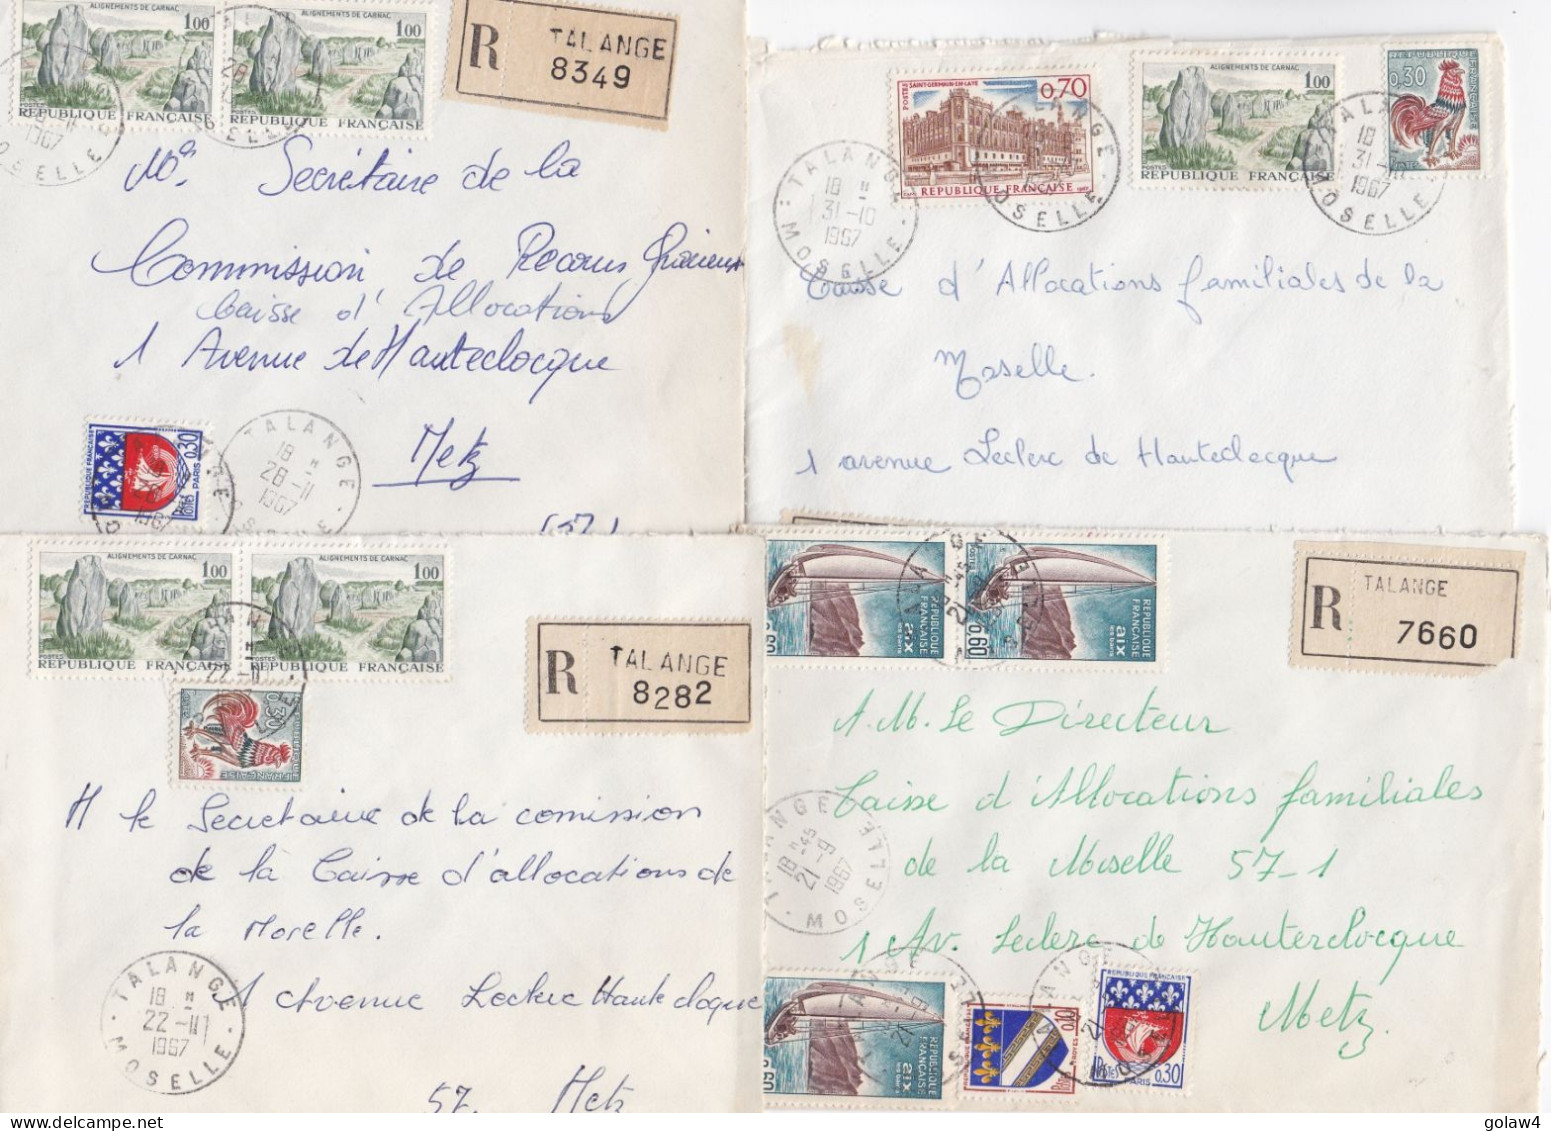 ALIGNEMENTS DE CARNAC
1,00
POSTES
RÉPUBLIQUE FRANÇAISE
ALIGNEMENTS DE CARNAC
1,00
POSTES
RÉPUBLIQUE FRANÇAISE
1967
MOSELLE
R TALANGE
8349
Mr. Secrétaire de la
Commission de Recours Gracieux
Caisse d'Allocations
1 Avenue de Hauteclocque
Metz
(57)
RÉPUBLIQUE FRANÇAISE
0,30
PARIS
POSTES
TALANGE
18 H
28-11
1967
MOSELLE
POSTES SAINT-GERMAIN-EN-LAYE
0,70
RÉPUBLIQUE FRANÇAISE
1967
ALIGNEMENTS DE CARNAC
1,00
POSTES
RÉPUBLIQUE FRANÇAISE
RÉPUBLIQUE FRANÇAISE
0,30
POSTES
TALANGE
18 H
31-10
1967
MOSELLE
TALANGE
18
31-10
1967
MOSELLE
Caisse d'Allocations familiales de la
Moselle.
1 avenue Leclerc de Hauteclocque
ALIGNEMENTS DE CARNAC
1,00
POSTES
RÉPUBLIQUE FRANÇAISE
ALIGNEMENTS DE CARNAC
1,00
POSTES
RÉPUBLIQUE FRANÇAISE
22-11
0,30
RÉPUBLIQUE FRANÇAISE
R TALANGE
8282
M le Secretaire de la comission
de la Caisse d'allocations de
la Moselle.
1 Avenue Leclerc Haute cloque
57 Metz
TALANGE
18 H
22-11
1967
MOSELLE
RÉPUBLIQUE FRANÇAISE
aix
LES BAINS
0,60
RÉPUBLIQUE FRANÇAISE
aix
LES BAINS
0,60
R TALANGE
7660
A. M. Le Directeur
Caisse d'Allocations familiales
de la Moselle 57-1
1 Av. Leclerc de Hauterclocque
Metz.
TALANGE
18 H 45
21-9
1967
MOSELLE
RÉPUBLIQUE FRANÇAISE
aix
LES BAINS
0,60
0,10
TROYES
POSTES
RÉPUBLIQUE FRANÇAISE
POSTES
PARIS
0,30
golaw4